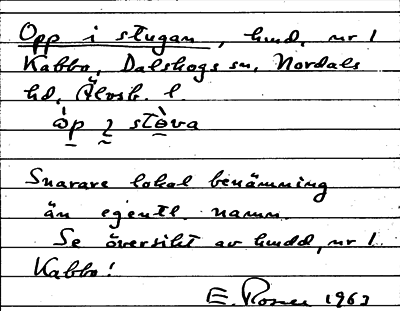 Opp i stugan, hmd, nr 1
Kabbo, Dalskogs sn, Nordals
hd, Älvsb. l.
òp ɿ stòva
Snarare lokal benämning
än egentl. namn.
Se översikt av hmdd, nr 1
Kabbo!
E. Rosee 1963